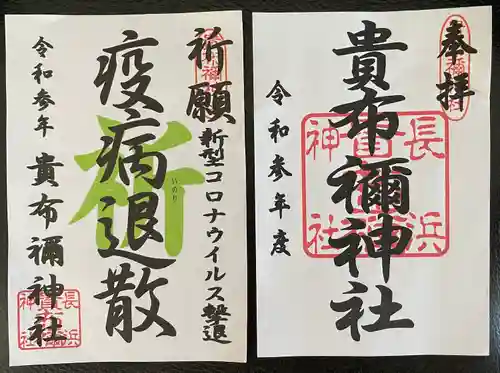 祈願
新型コロナウイルス撃退
疫病退散
祈
いのり
令和参年
貴布禰神社
奉拝
貴布禰神社
令和参年度
長浜
貴布禰
神社